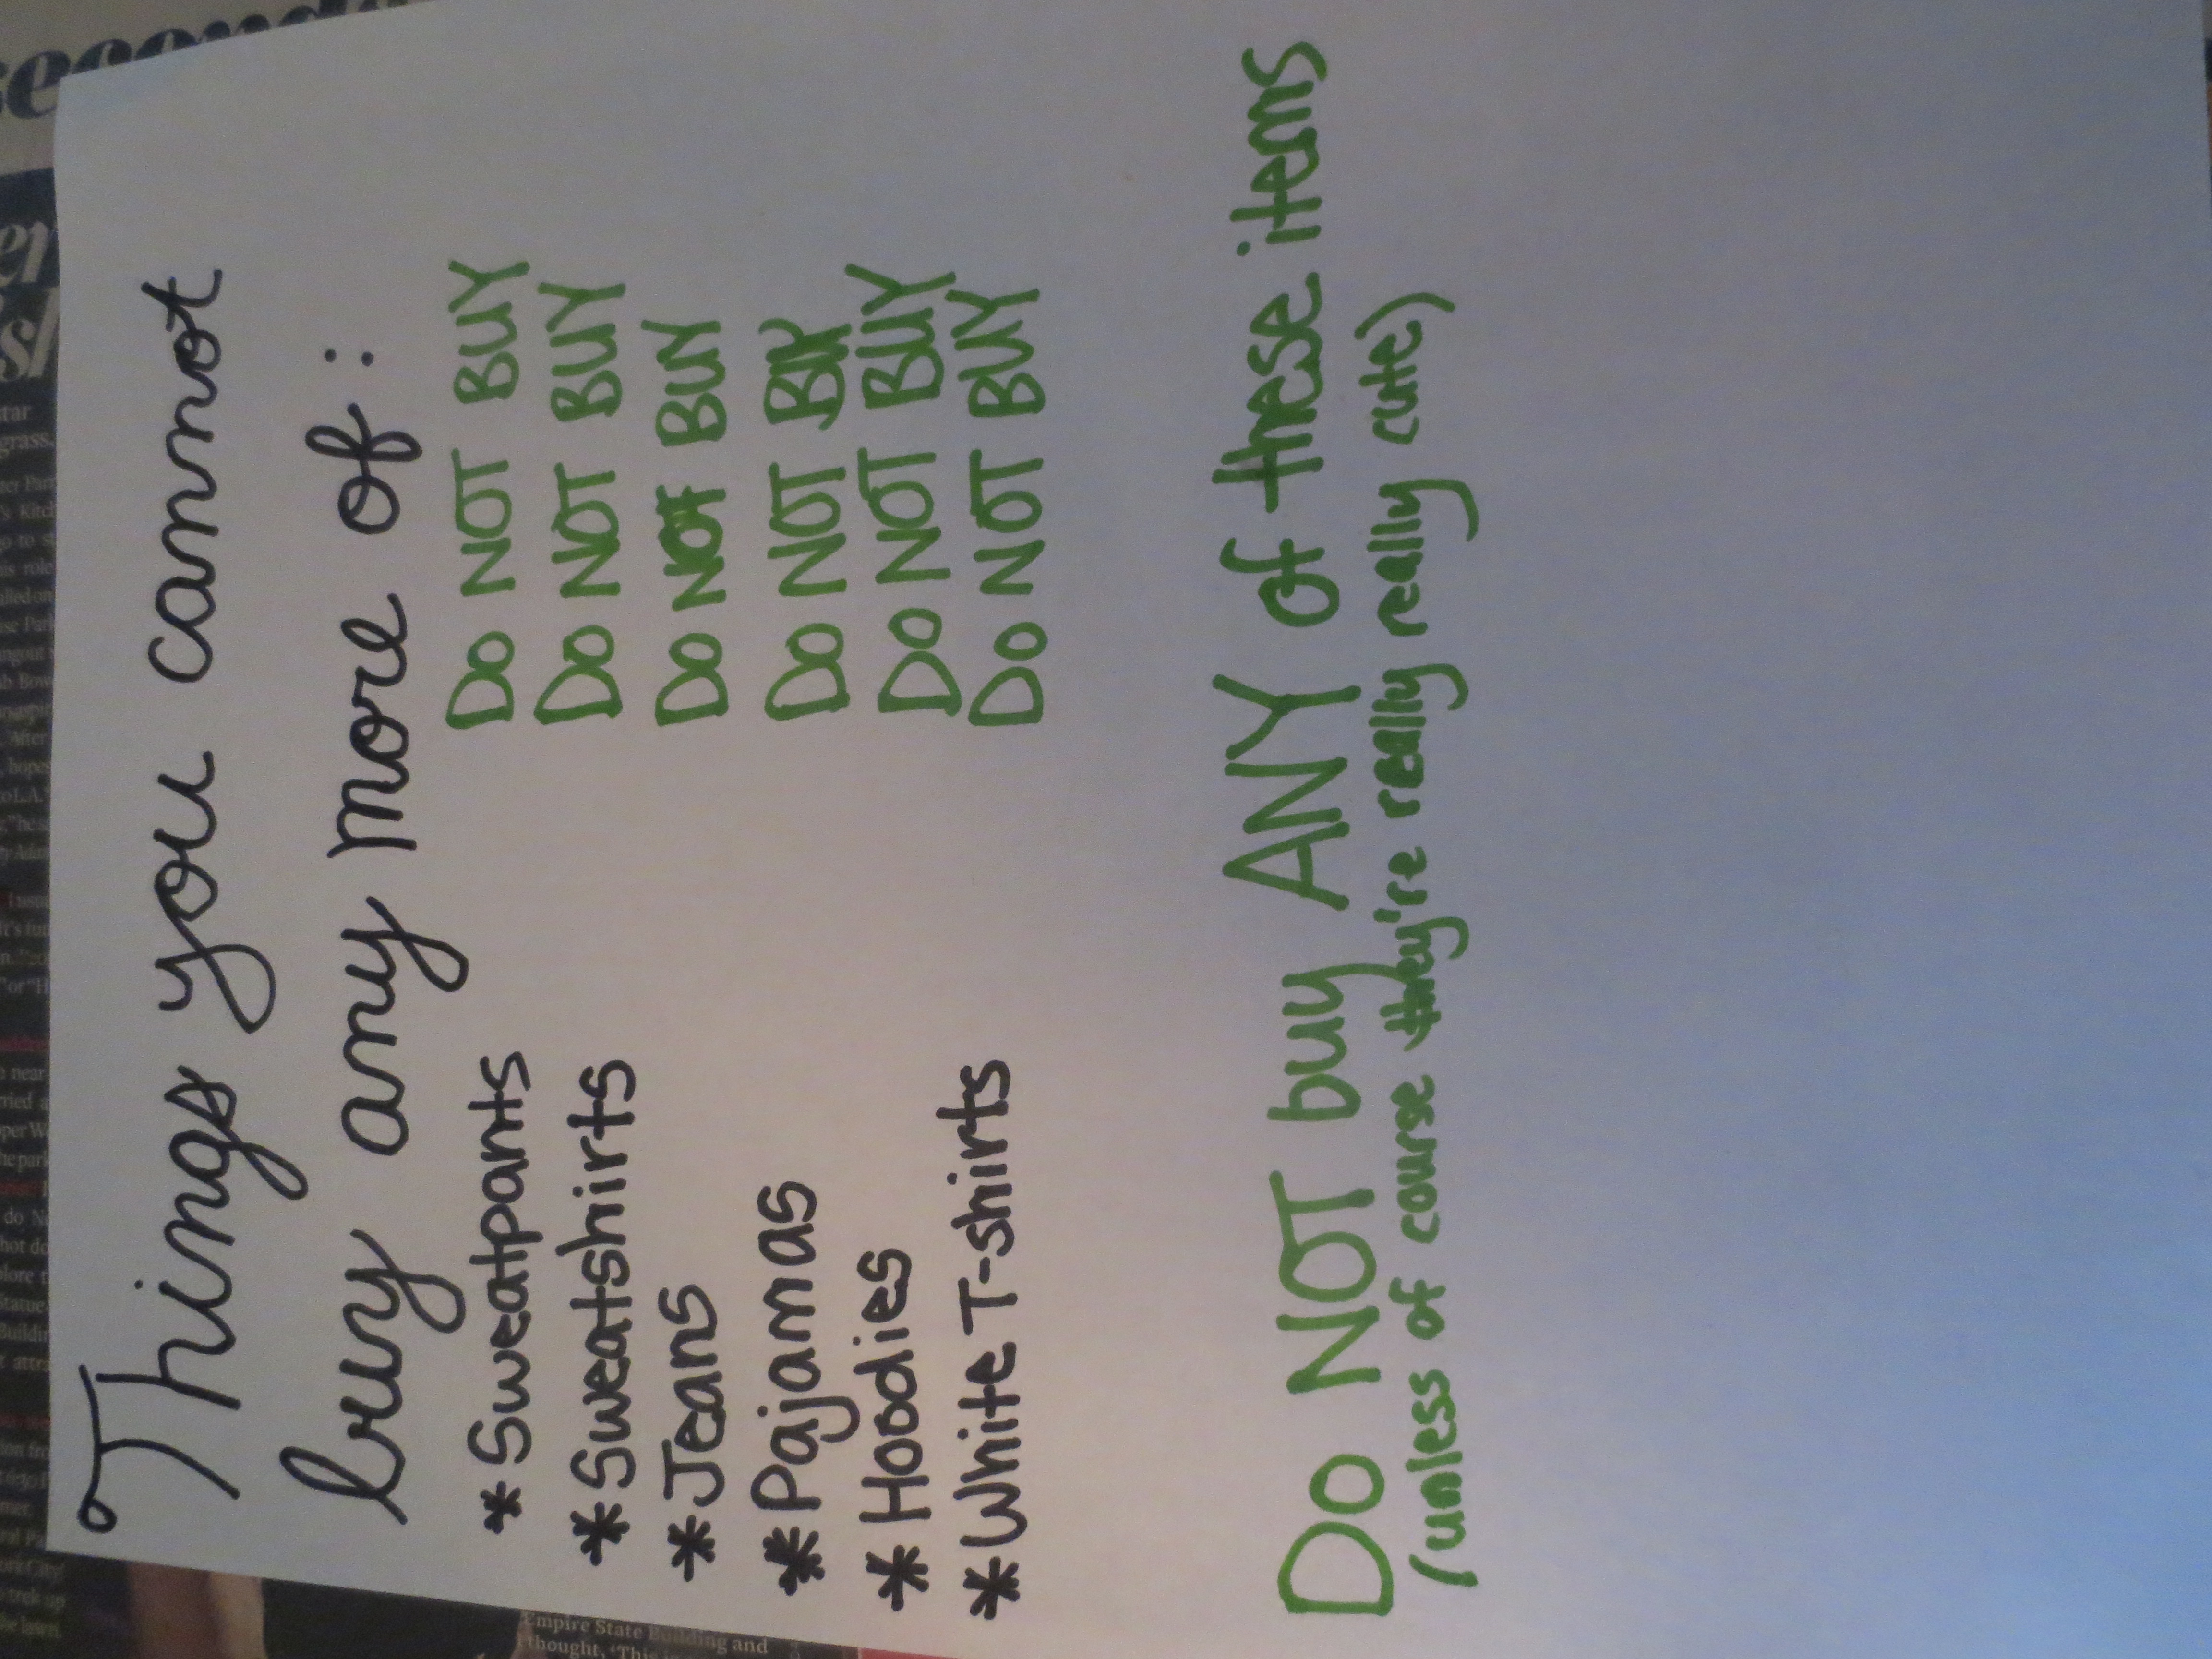 Things you cannot
buy any more of:
* Sweatpants DO NOT BUY
* Sweatshirts DO NOT BUY
* Jeans DO NOT BUY
* Pajamas DO NOT BUY
* Hoodies DO NOT BUY
* White T-shirts DO NOT BUY
DO NOT buy ANY of these items
(unless of course they're really really really cute)
Empire State Building and
thought, 'This